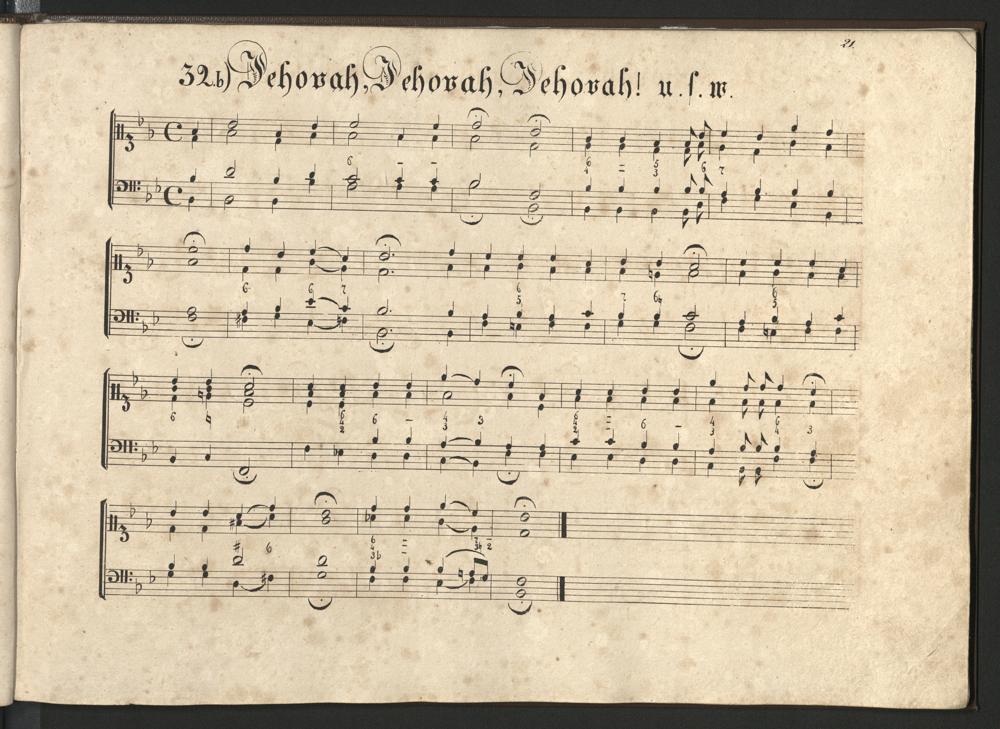 21.
32.b) Jehovah, Jehovah, Jehovah! u. s. w.